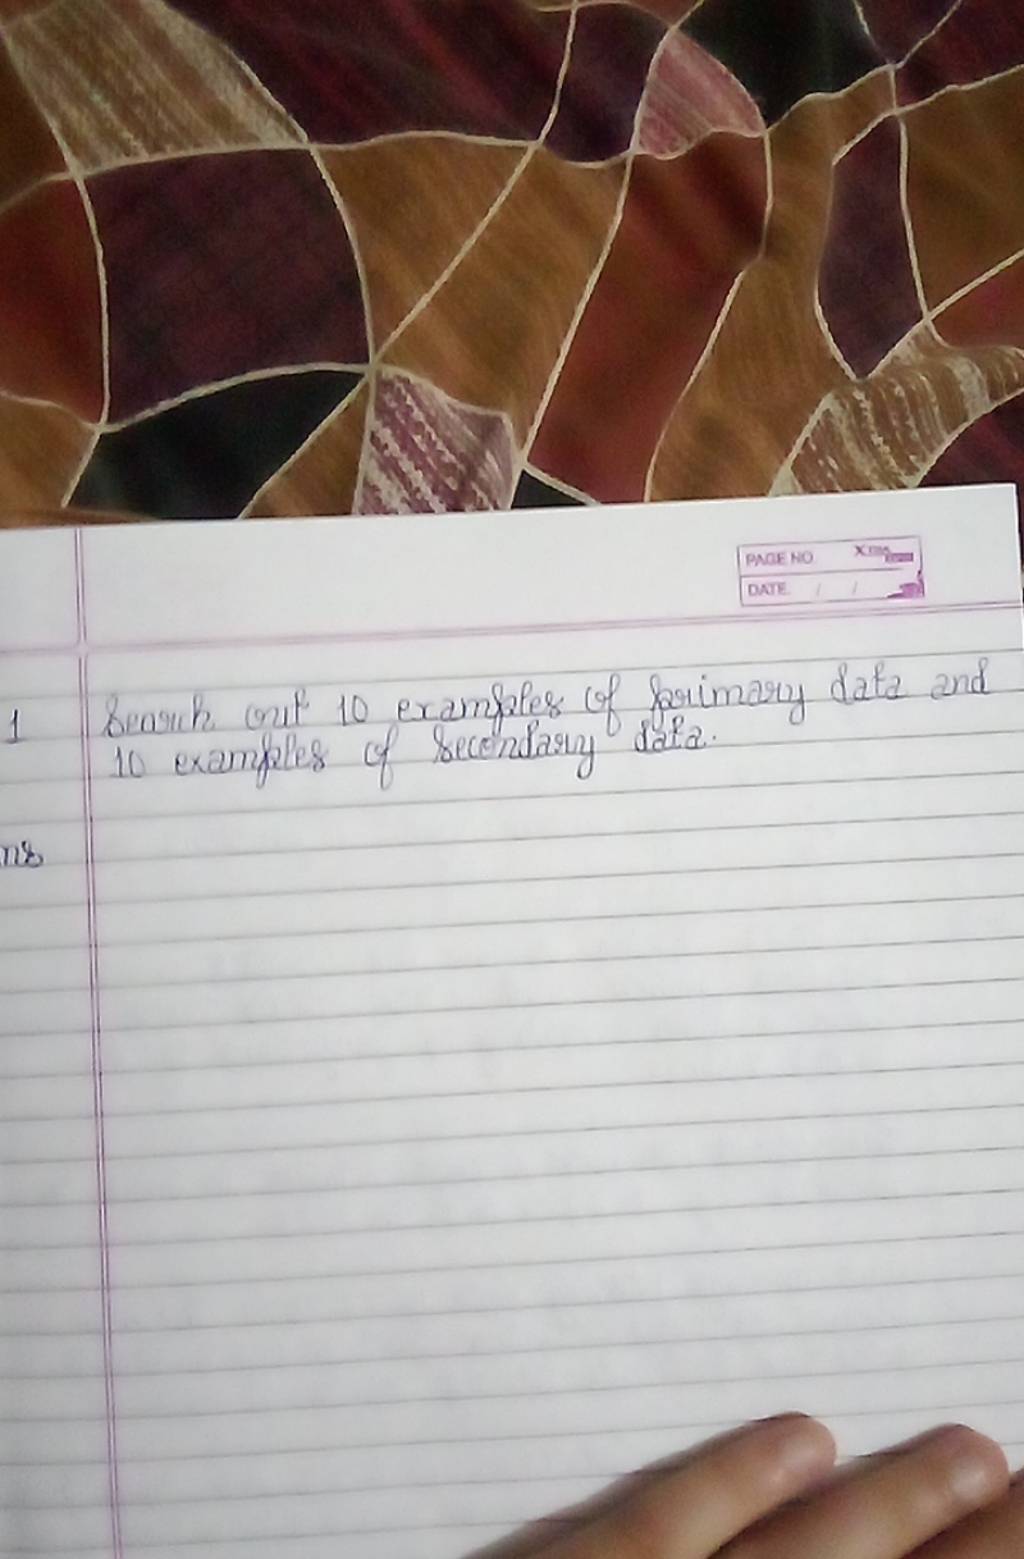 PAGE NO.
DATE / /
1 Search out 10 examples of primary data and
10 examples of secondary data.
ns